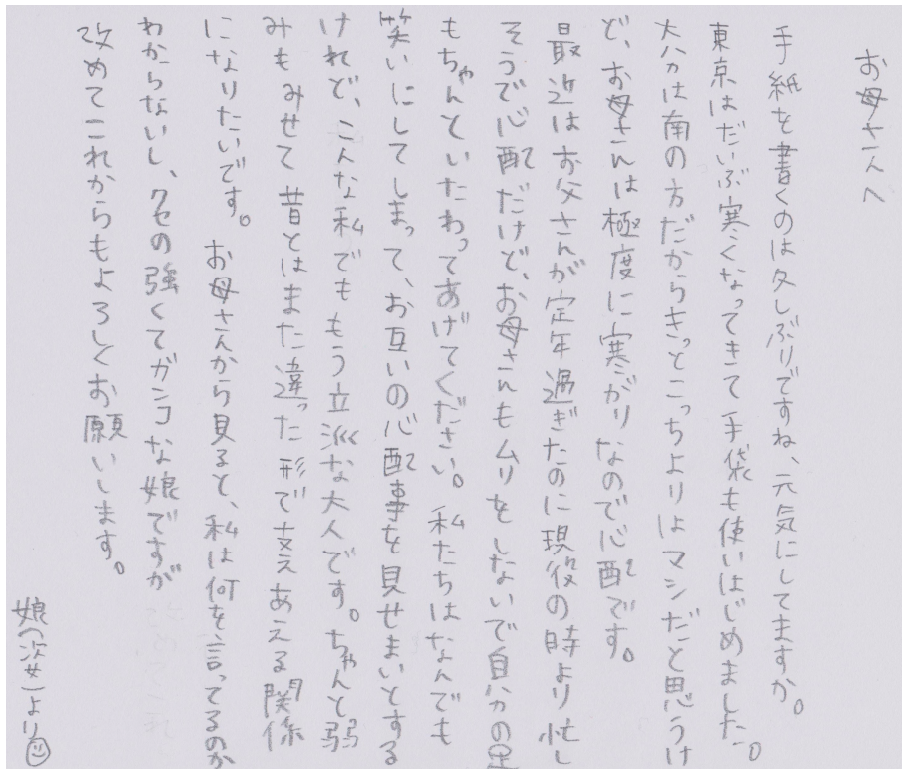 お母さんへ
手紙を書くのは久しぶりですね、元気にしてますか。
東京はだいぶ寒くなってきて手袋も使いはじめました。
大分は南の方だからきっとこっちよりはマシだと思うけ
ど、お母さんは極度に寒がりなので心配です。
最近はお父さんが定年過ぎたのに現役の時より忙し
そうで心配だけど、お母さんもムリをしないで自分の足
もちゃんといたわってあげてください。私たちはなんでも
笑いにしてしまって、お互いの心配事を見せまいとする
けれど、こんな私でももう立派な大人です。ちゃんと弱
みもみせて昔とはまた違った形で支えあえる関係
になりたいです。お母さんから見ると、私は何を言ってるのか
わからないし、クセの強くてガンコな娘ですが
改めてこれからもよろしくお願いします。
娘(次女)より